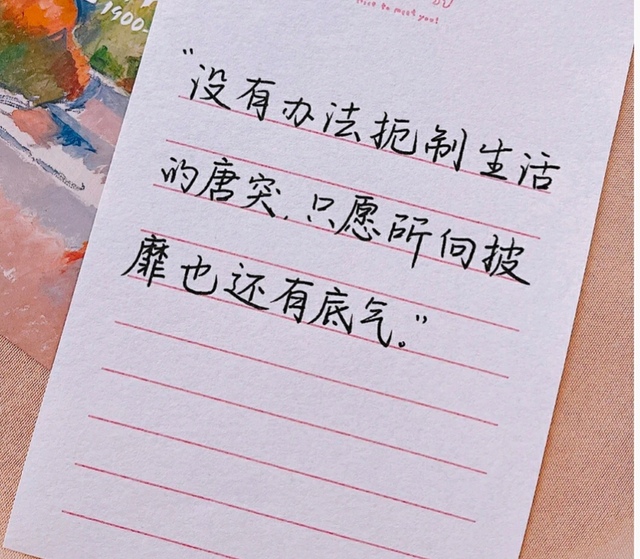 1900-
Nice to meet you!
“没有办法扼制生活
的唐突，只愿所向披
靡也还有底气。”